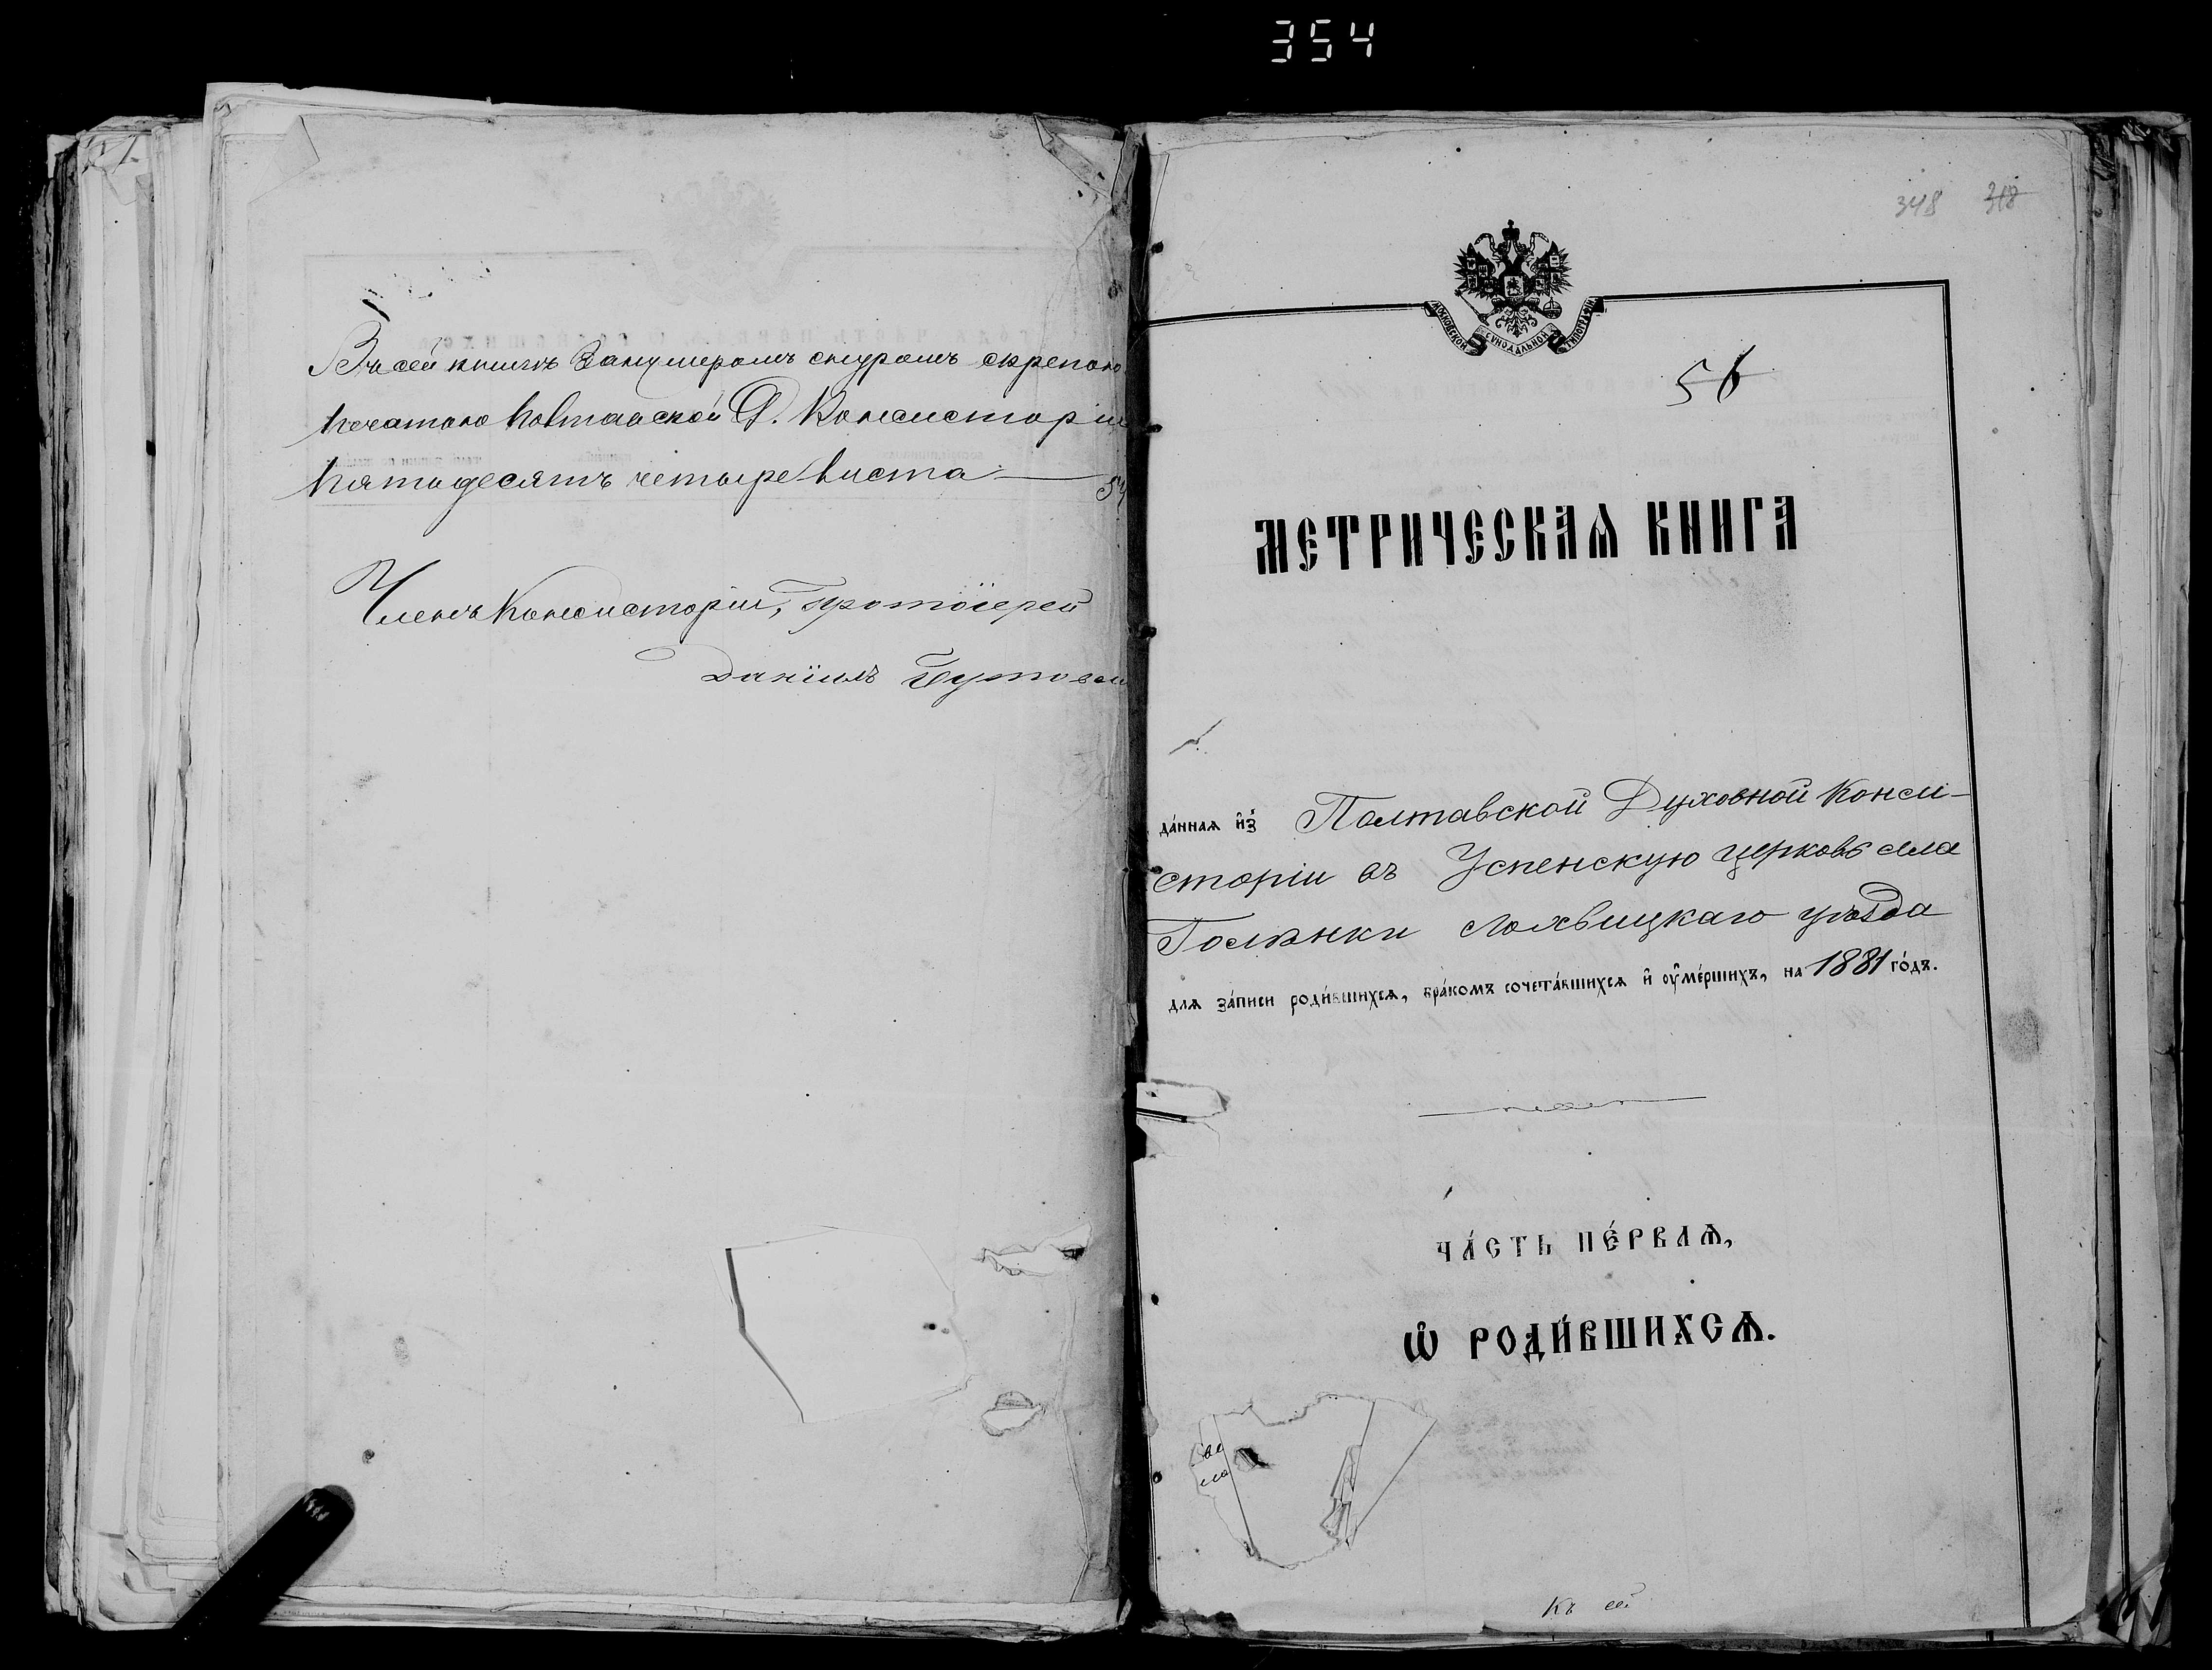 354
Въ сей книгѣ за нумеромъ снуромъ скрепою
печатью Полтавской Д. Консисторіи
пятьдесятъ четыре листа — 54
Членъ Консисторіи, Протоіерей
Даніилъ
348 318
МОСКОВСКОЙ СѴНОДАЛЬНОЙ ТИПОГРАФІИ
56
МЕТРИЧЕСКАѦ КНИГА
да́ннаѧ и҆з̾ Полтавской Духовной Конси-
сторіи въ Успенскую церковь села
Голѣнки Лохвицкаго уѣзда
длѧ за́писи роди́вшихсѧ, бра́комъ сочета́вшихсѧ и҆ оу҆ме́ршихъ, на 1881 го́дъ.
ЧА́СТЬ ПЕ́РВАѦ,
Ѽ РОДИ́ВШИХСѦ.
Къ сей